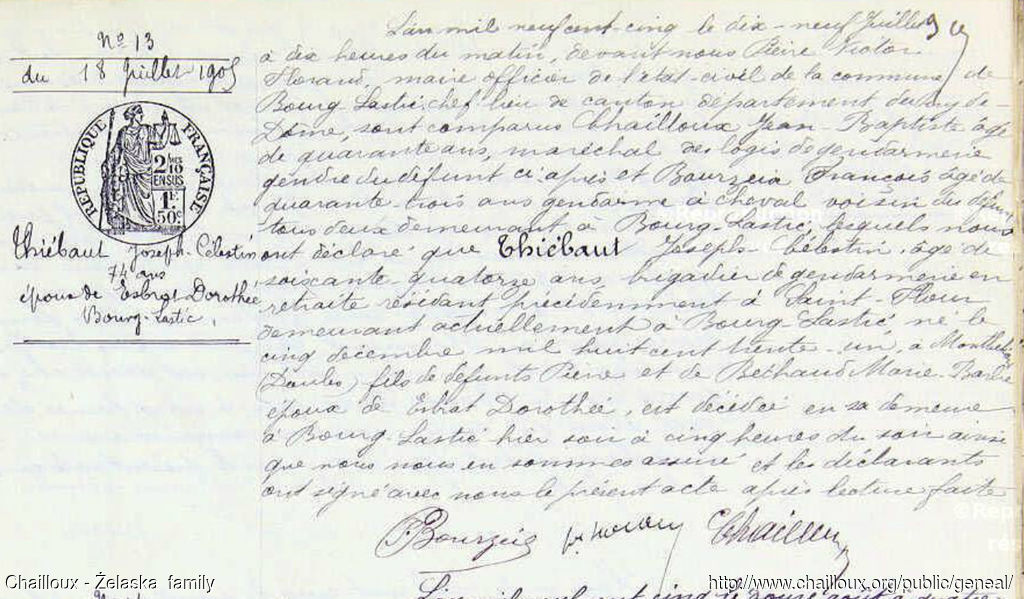 Nº 13
du 18 Juillet 1905
RÉPUBLIQUE FRANÇAISE
2/10
EN SUS
1F
50c
Thiébaut Joseph-Célestin
74 ans
époux de Esbrat Dorothée
Bourg-Lastic,
L'an mil neuf cent cinq le dix-neuf Juillet
à dix heures du matin, devant nous Pierre Victor
maire officier de l'état-civil de la commune de
Bourg-Lastic, chef lieu de canton département du Puy de
Dôme, sont comparus Chailloux Jean-Baptiste âgé
de quarante ans, maréchal des logis de gendarmerie
gendre du défunt ci-après et Bourzeix François âgé de
quarante-trois ans gendarme à cheval voisin du défunt
tous deux demeurant à Bourg-Lastic, lesquels nous
ont déclaré que Thiébaut Joseph-Célestin, âgé de
soixante-quatorze ans, brigadier de gendarmerie en
retraite résidant précédemment à Saint-Flour
demeurant actuellement à Bourg-Lastic, né le
cinq décembre mil huit cent trente-un, à
(Doubs) fils de défunts Pierre et de Béchaud Marie-Barbe
époux de Esbrat Dorothée, est décédé en sa demeure
à Bourg-Lastic hier soir à cinq heures du soir ainsi
que nous nous en sommes assuré et les déclarants
ont signé avec nous le présent acte après lecture faite
Bourzeix Chailloux
Chailloux - Želaska family
http://www.chailloux.org/public/geneal/
L'an mil neuf cent cinq le douze août à quatre